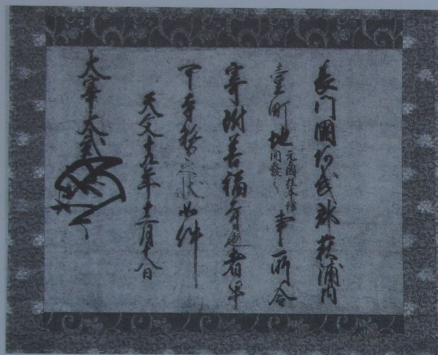 長門國阿武郡萩浦内
壹町地 事所令
寄附善福寺也者早
可寺務之状如件
天文十九年十二月八日
大宰大貳